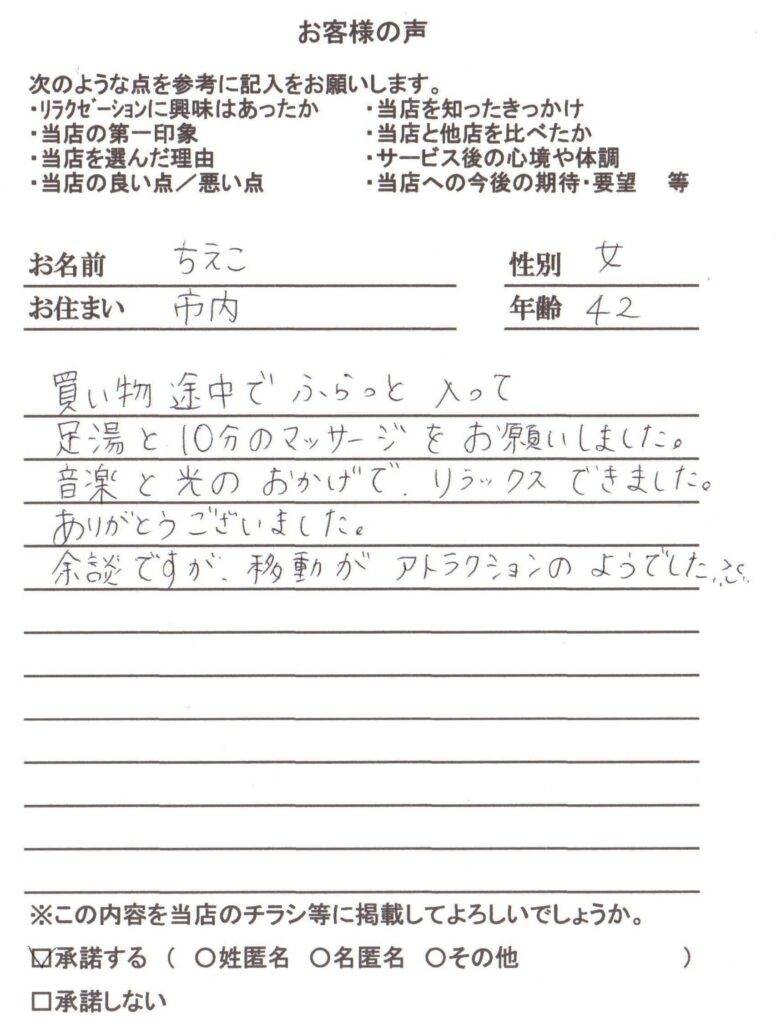 お客様の声
次のような点を参考に記入をお願いします。
・ﾘﾗｸｾﾞｰｼｮﾝに興味はあったか ・当店を知ったきっかけ
・当店の第一印象 ・当店と他店を比べたか
・当店を選んだ理由 ・サービス後の心境や体調
・当店の良い点／悪い点 ・当店への今後の期待・要望 等
お名前 ちえこ 性別 女
お住まい 市内 年齢 42
買い物途中でふらっと入って
足湯と10分のマッサージをお願いしました。
音楽と光のおかげで、リラックスできました。
ありがとうございました。
余談ですが、移動がアトラクションのようでした
※この内容を当店のチラシ等に掲載してよろしいでしょうか。
☑承諾する （ ○姓匿名 ○名匿名 ○その他 ）
□承諾しない